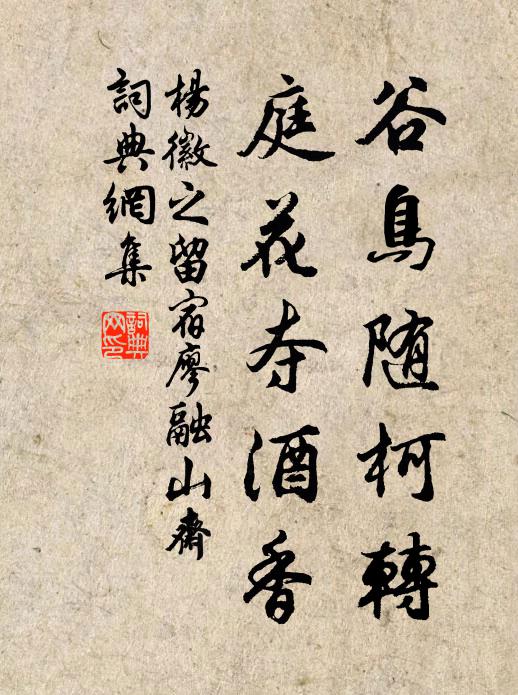 谷鳥随柯轉
庭花夺酒香
楊徽之留宿廖融山齋
詞典網集
詞典
网印